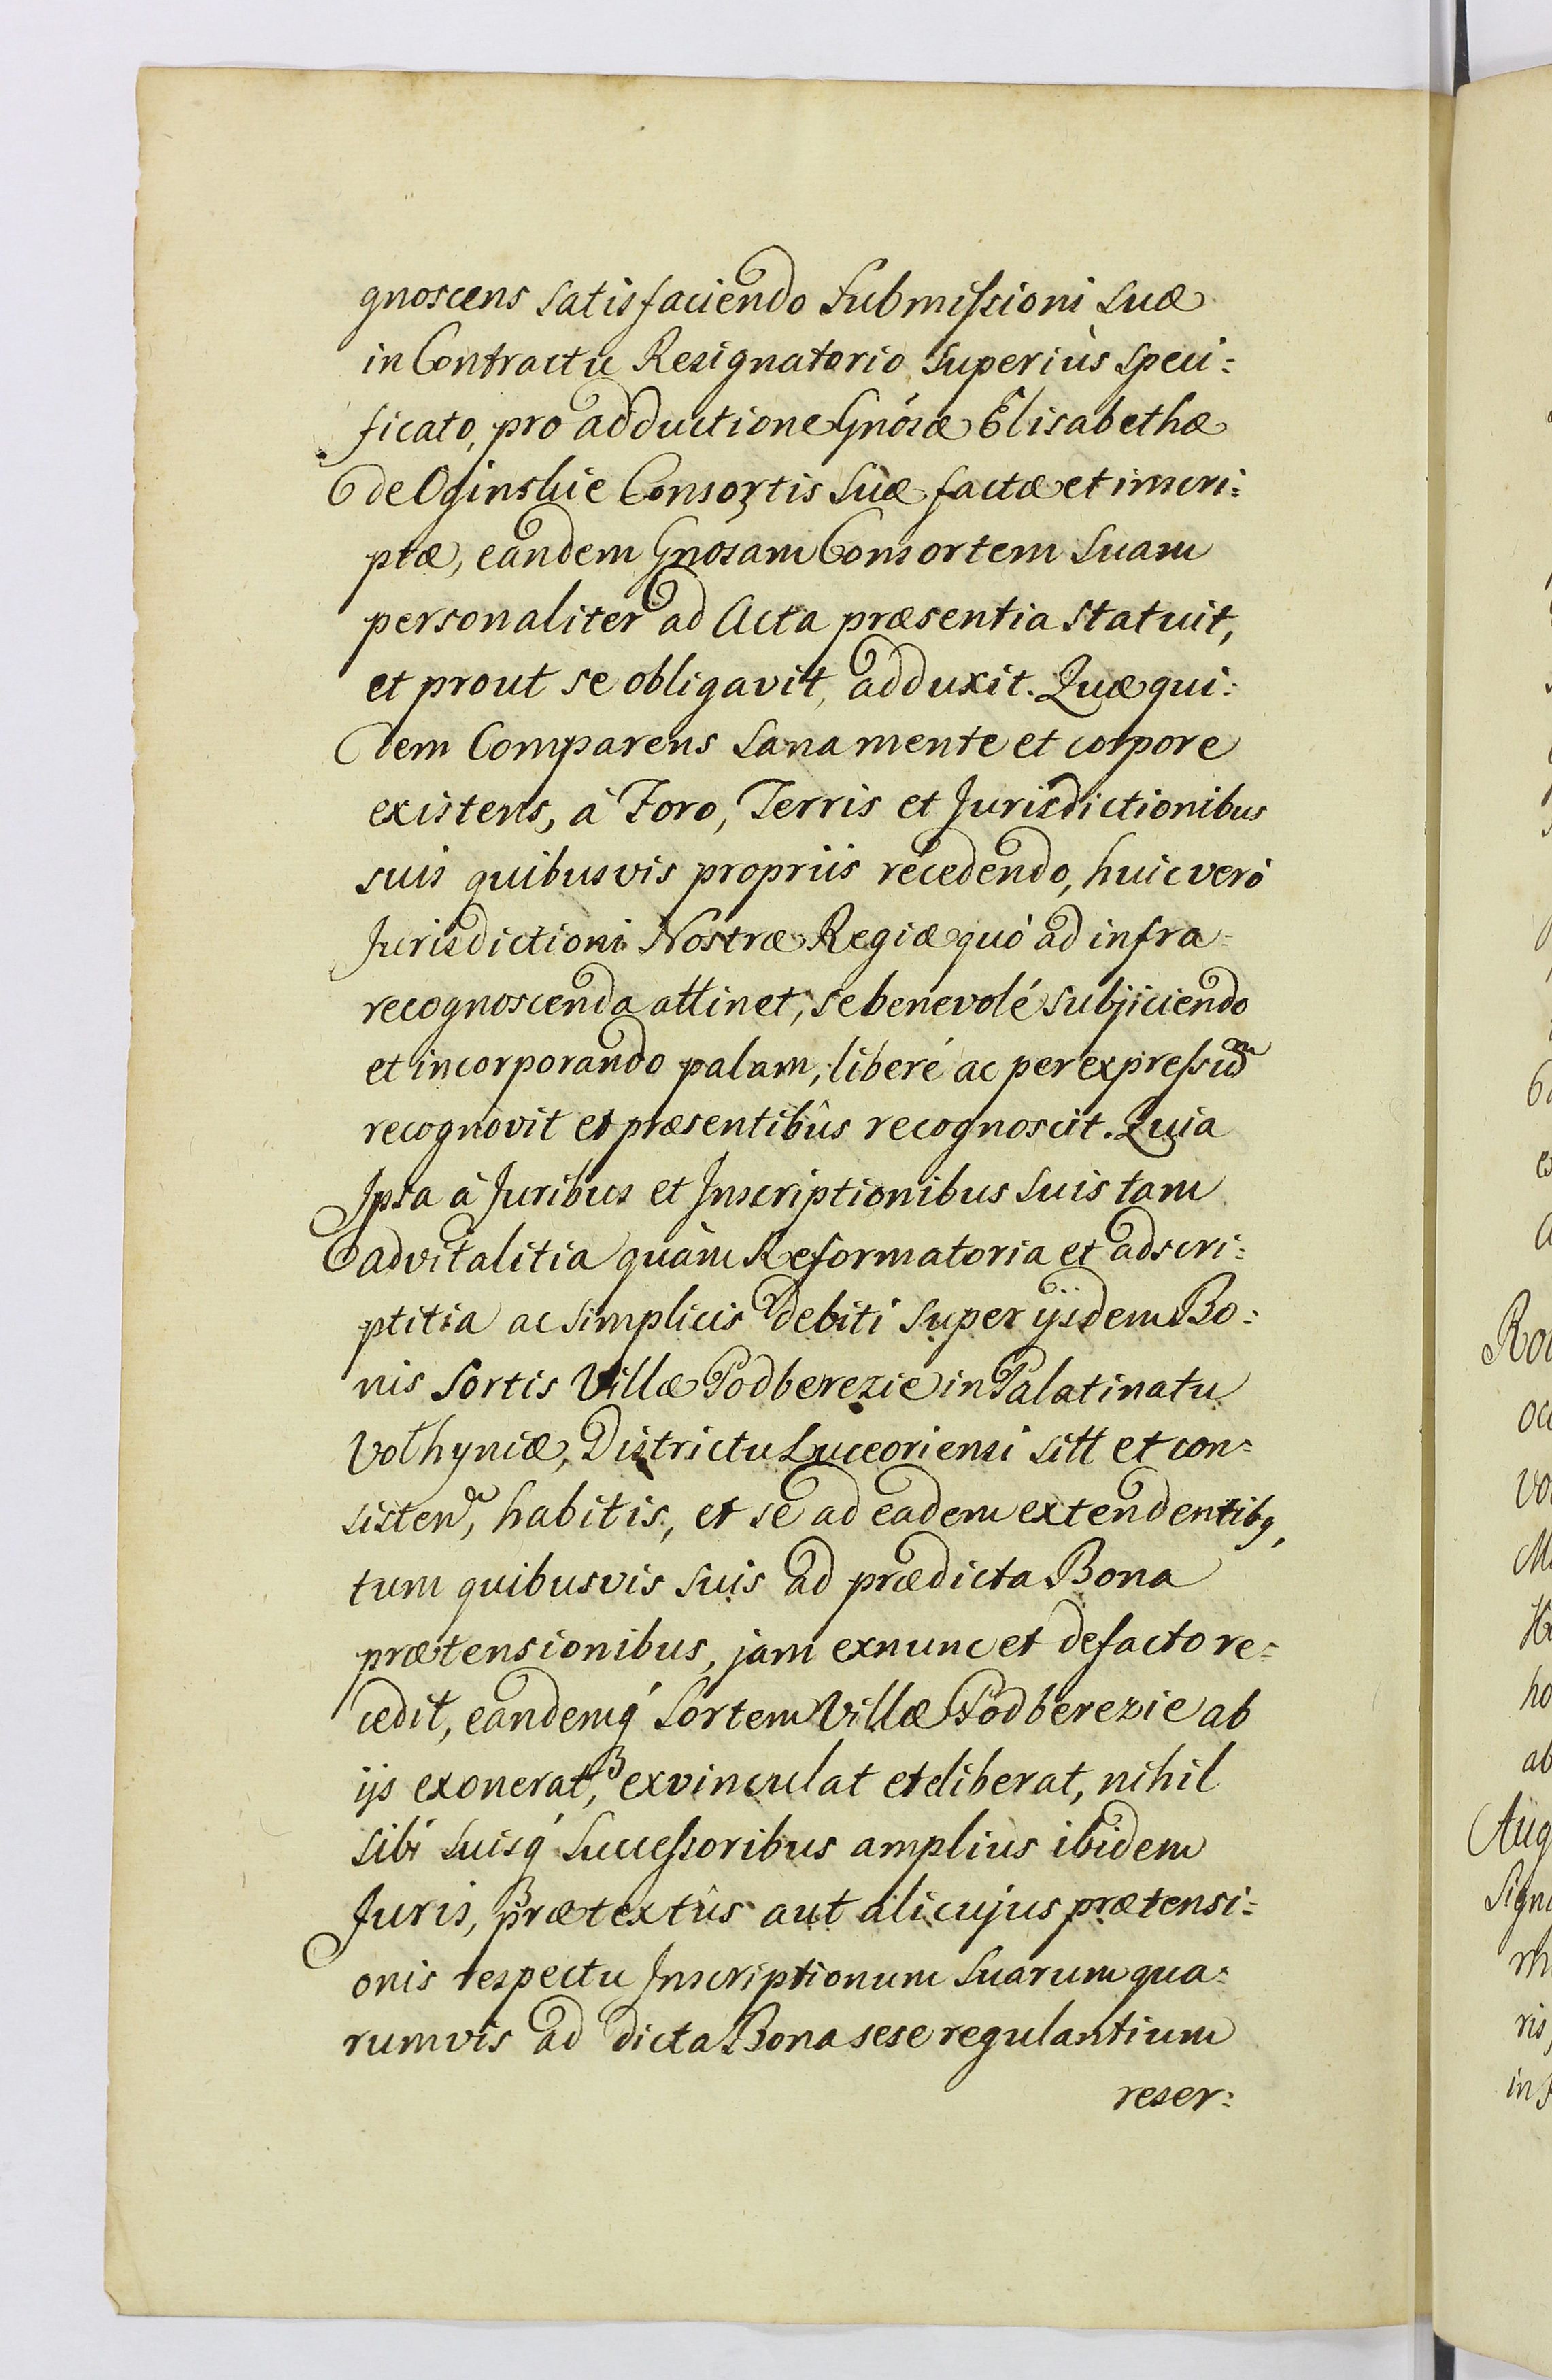 gnoscens satisfaciendo Submissioni suæ
in Contractu Resignatorio superiùs speci=
ficato, pro adductione Gnósæ Elisabethæ
de Oginskie Consortis suæ factæ et inscri=
ptæ, eandem Gnosam Consortem suam
personaliter ad Acta præsentia statuit,
et prout se obligavit, adduxit. Quæ qui=
dem Comparens sana mente et corpore
existens, à Foro, Terris et Jurisdictionibus
suis quibusvis propriis recedendo, huic verò
Jurisdictioni Nostræ Regiæ quò ad infra=
recognoscenda attinet, se benevolé subjiciendo
et incorporando palam, liberé ac per expressũ
recognovit et præsentibûs recognoscit. Quia
Ipsa à Juribus et Inscriptionibus suis tam
advitalitia quàm Reformatoria et adscri=
ptitia ac simplicis debiti super ijsdem Bo=
nis Sortis Villæ Podberezie in Palatinatu
Volhyniæ, Districtu Luceoriensi sitt et con=
sisteñ, habitis, et se ad eadem extendentibq,
tum quibusvis suis ad prædicta Bona
prætensionibus, jam exnunc et defacto re=
cedit, eandemq́ Sortem Villæ Podberezie ab
ijs exonerat, exvinculat et eliberat, nihil
sibi suisq́ Successoribus amplius ibidem
Juris, prætextûs aut alicujus prætensi=
onis respectu Inscriptionum suarum qua=
rumvis ad dicta Bona sese regulantium
reser=